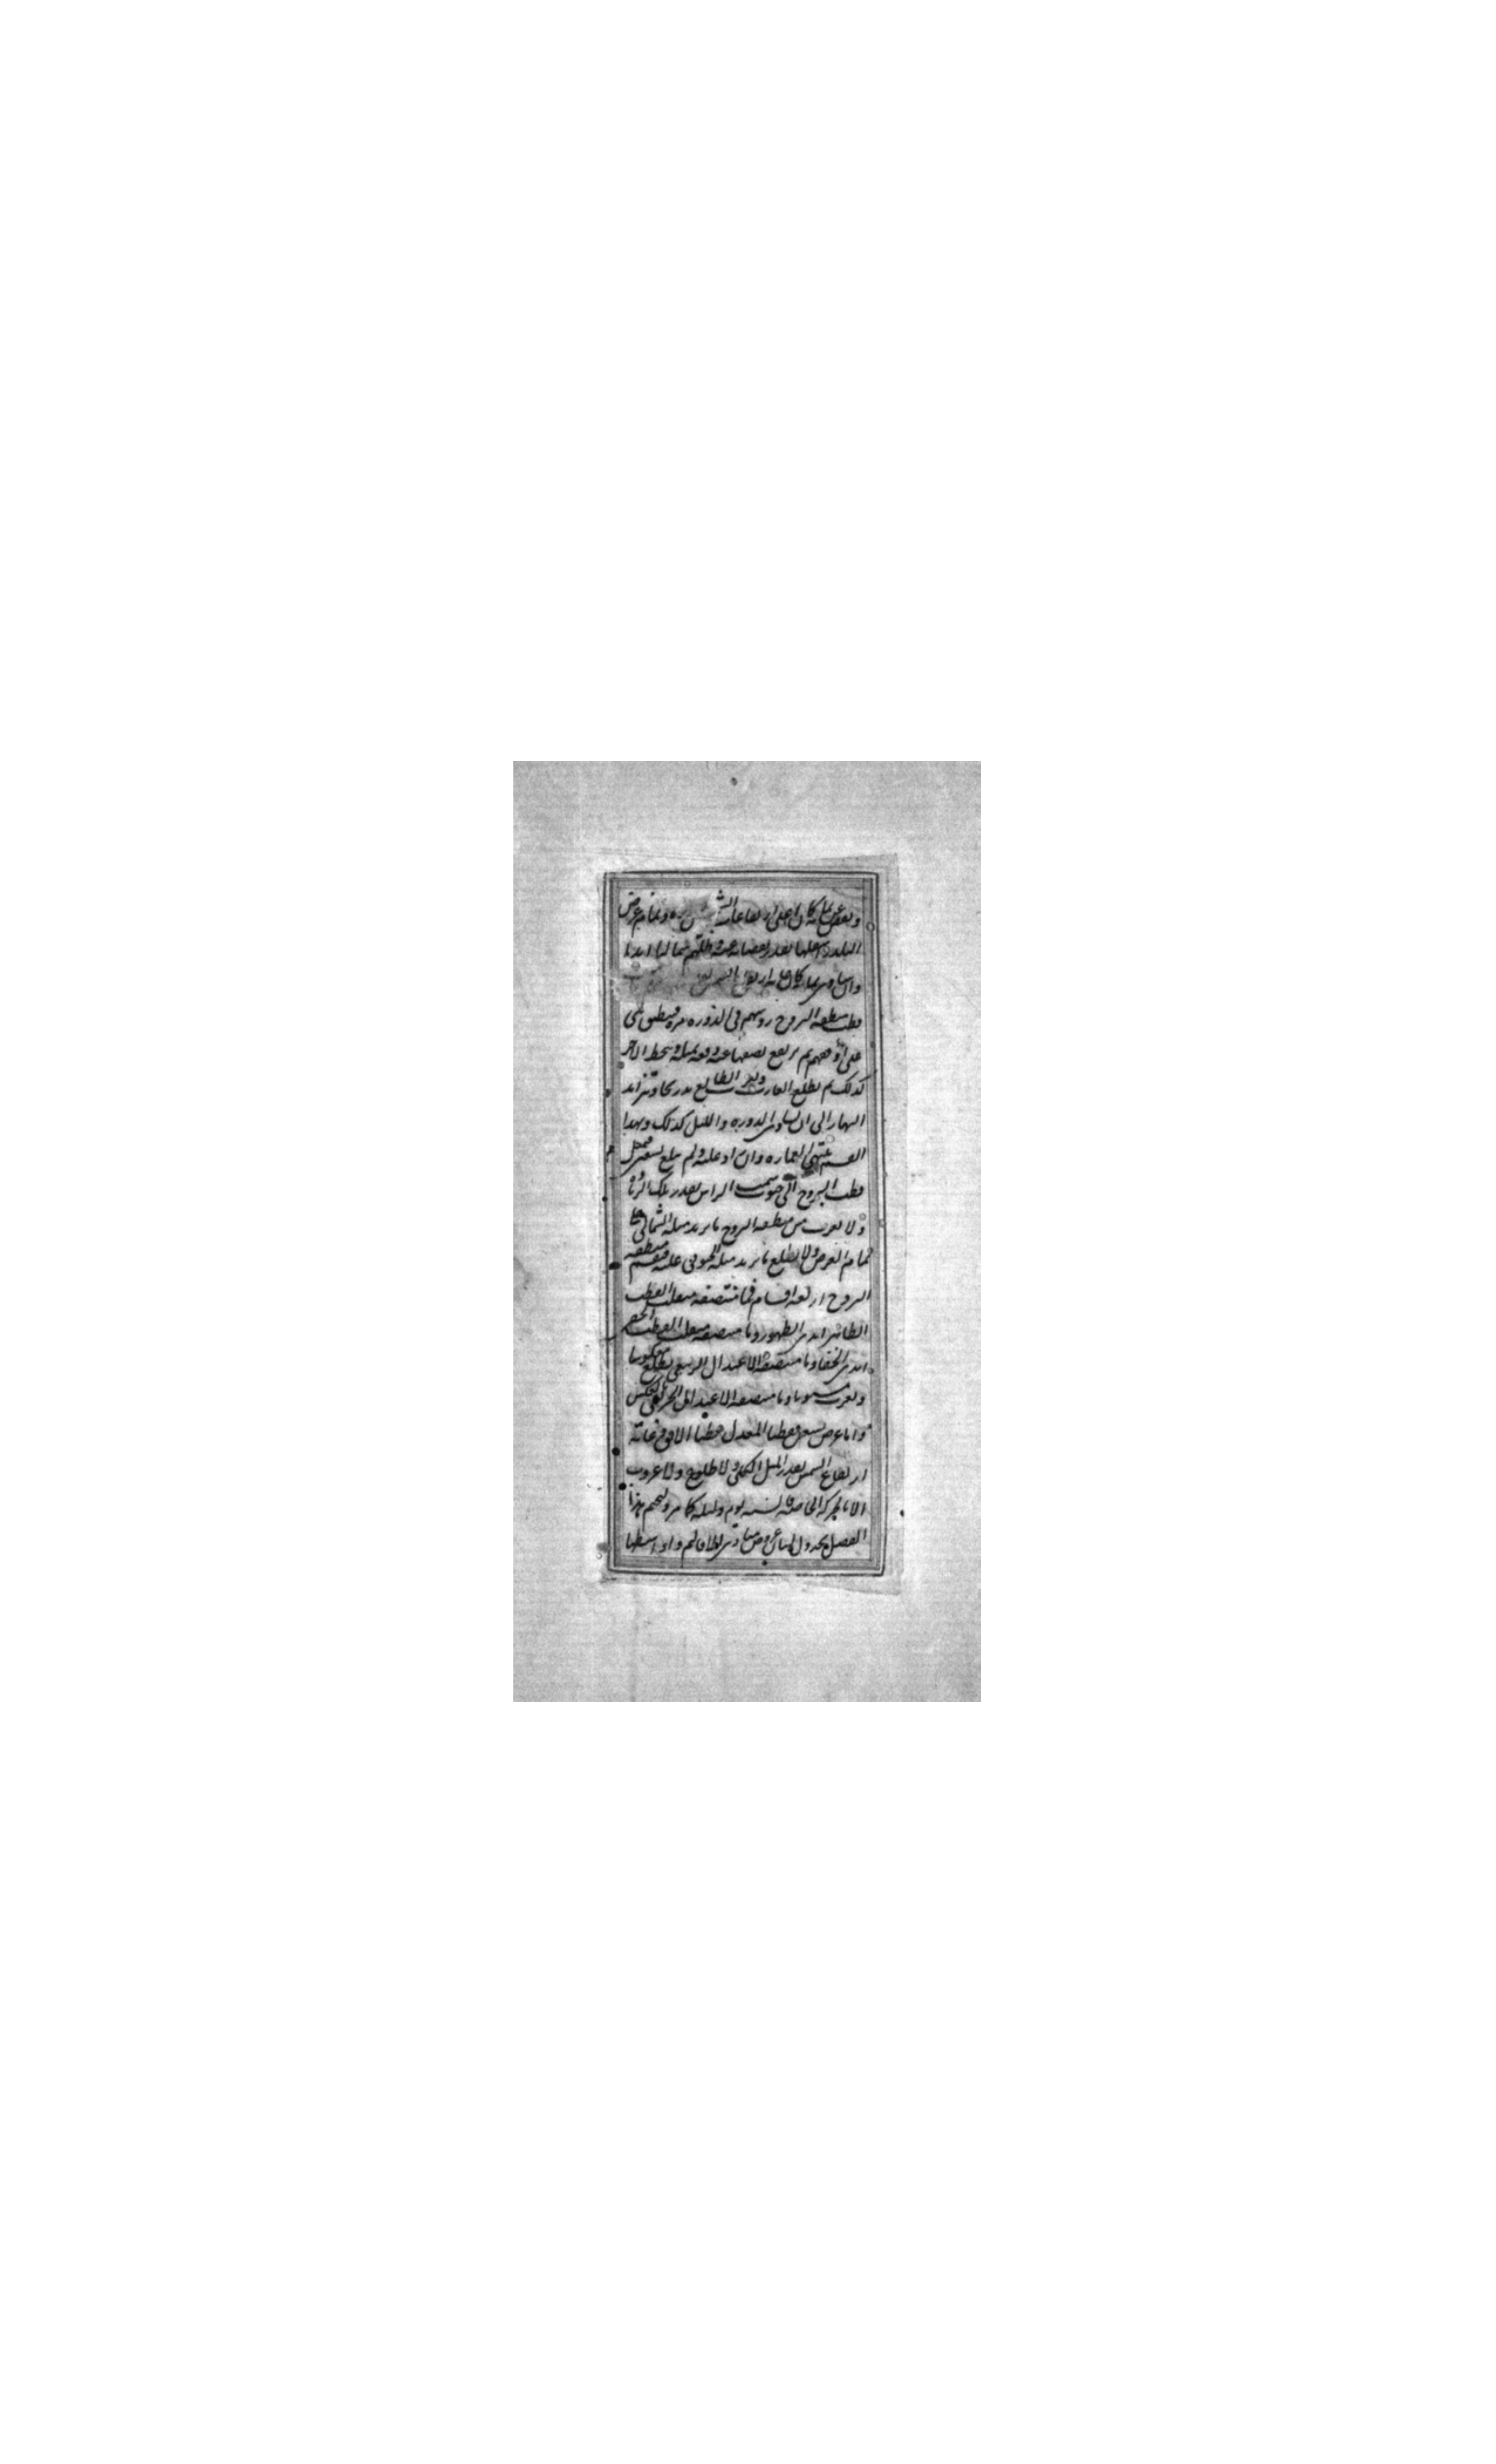 ونقص عن تمامه كان اعلى ارتفاعات الشمس وتمام عرض
البلد واسفلها بقدر نقصانه عنه وظلهم شماليا ابدا
وان ساوى تمامه كان غاية ارتفاع الشمس
قطب منطقة البروج رؤسهم في الدورة مرة فينطبق هي
على افقهم ثم يرتفع نصفها عنه دفعة مثله وينحط الآخر
كذلك ثم يطلع الغارب ويغرب الطالع تدريجا ويتزايد
النهار الى ان يساوى الدورة والليل كذلك وبهذا
القسم ينتهي العمارة وان زاد عليه ولم يبلغ تسعين فيميل
قطب البروج الى جنوب سمت الراس بقدر تلك الزيادة
ولا يغرب من منطقة البروج ما يزيد ميله الشمالي على
تمام العرض ولا يطلع ما يزيد ميله الجنوبي عليه فينقسم منطقة
البروج اربعة اقسام فما منتصفه منقلب القطب
الظاهر ابدى الظهور وما منتصفه منقلب القطب الخفي
ابدى الخفا وما منتصفه الاعتدال الربيعي يطلع معكوسا
ويغرب مستويا وما منتصفه الاعتدال الخريفي بالعكس
واما عرض تسعين فقطبا المعدل قطبا الافق وغاية
ارتفاع الشمس بقدر الميل الكلي ولا طلوع ولا غروب
الا بالحركة الخاصة فالسنة يوم وليلة كامر ولنختم هذا
الفصل بجدول لبيان عروض مبادى الاقاليم واواسطها